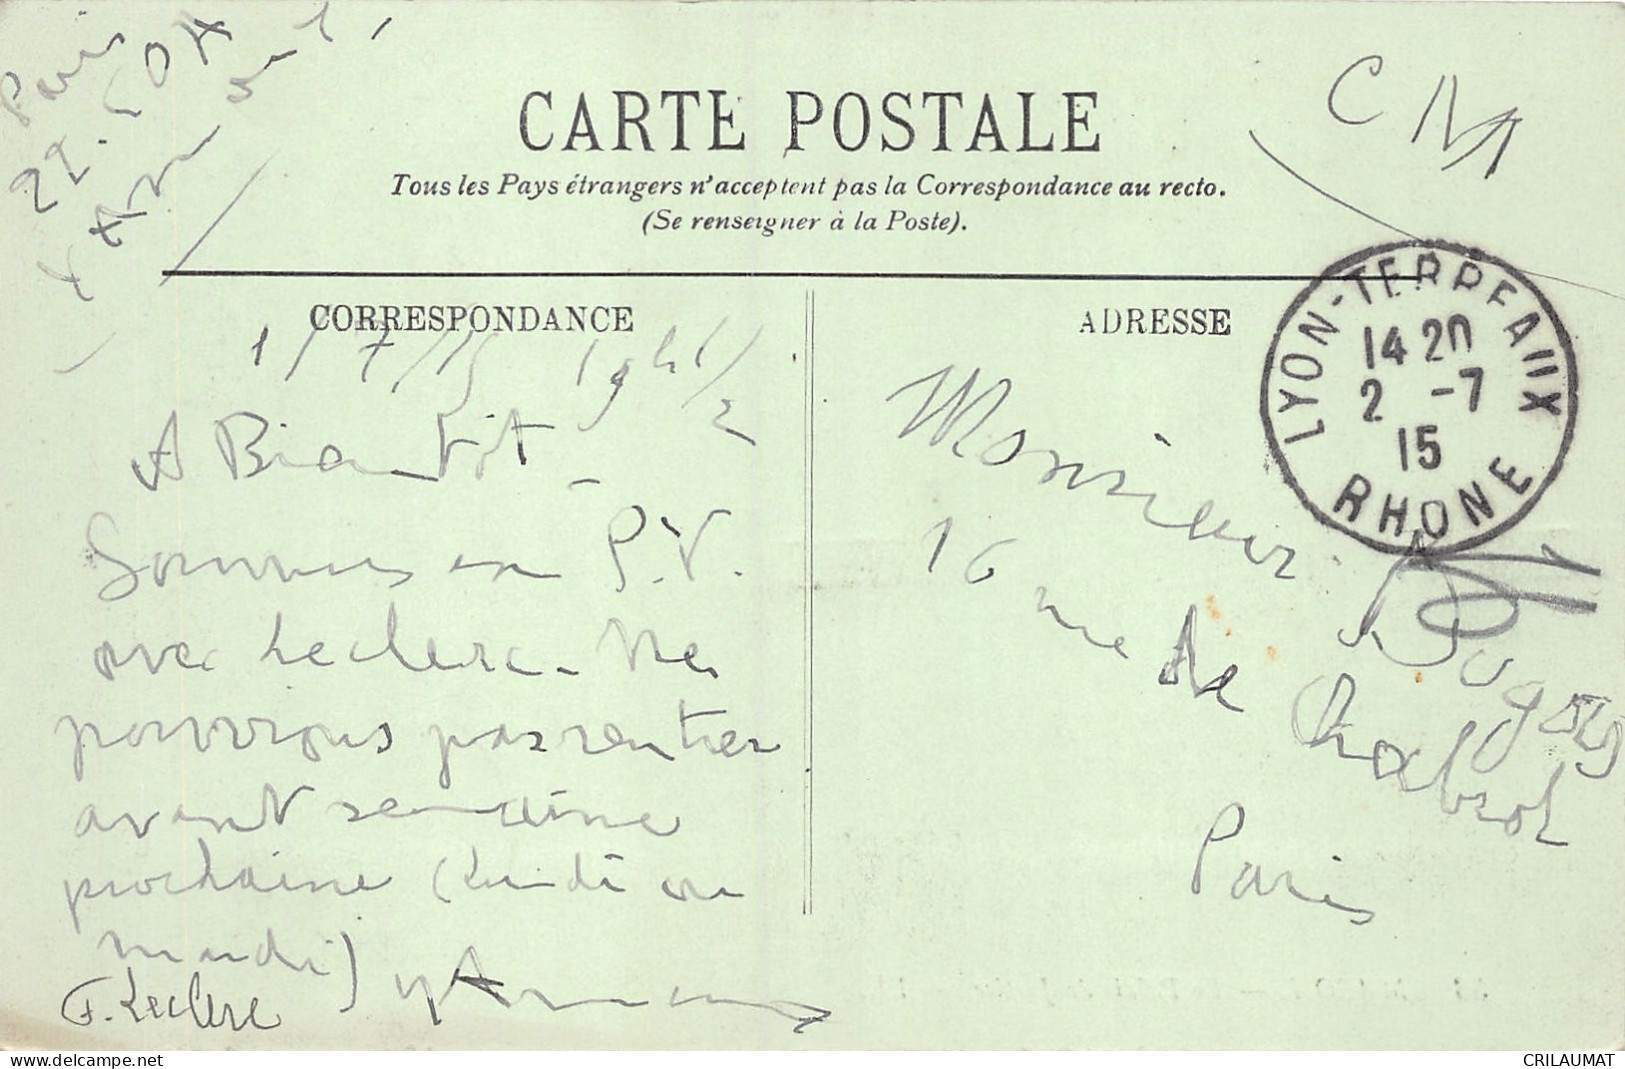 Paris
22.
CARTE POSTALE
Tous les Pays étrangers n'acceptent pas la Correspondance au recto.
(Se renseigner à la Poste).
CORRESPONDANCE
ADRESSE
LYON-TERREAUX
14 20
2 -7
15
RHONE
1/7/15 19h 1/2
A Biantôt -
Sommes en P.V.
avec Leclerc - Ne
pourrons pas rentrer
avant semaine
prochaine (Lundi ou
mardi)
F. Leclerc
Monsieur
16 rue de Chabrol
Paris
CRILAUMAT
delcampe.net